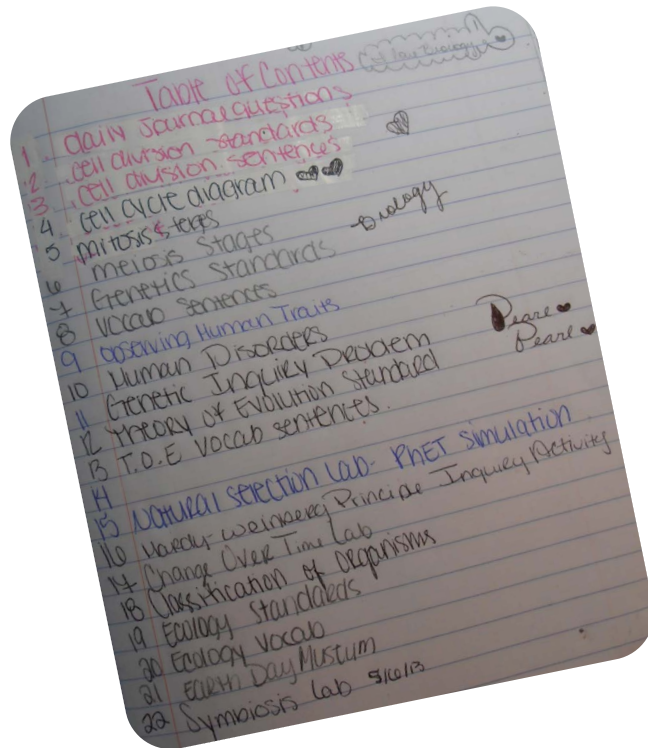 Table of Contents I love Biology
1 daily journal questions
2 cell division standards
3 cell division sentences
4 cell cycle diagram
5 mitosis steges
6 meiosis stages Biology
7 Genetics Standards
8 vocab sentences
9 observing Human Traits
10 Human Disorders Pearl
11 Genetic Inquiry Problem Pearl
12 Theory of Evolution Standard
13 T.O.E Vocab sentences.
14
15 Natural selection Lab- PhET simulation
16 Hardy-Weinberg Principle Inquiry Activity
17 Change Over Time Lab
18 Classification of organisms
19 Ecology Standards
20 Ecology Vocab
21 Earth Day Mustum
22 Symbiosis Lab 5/6/13